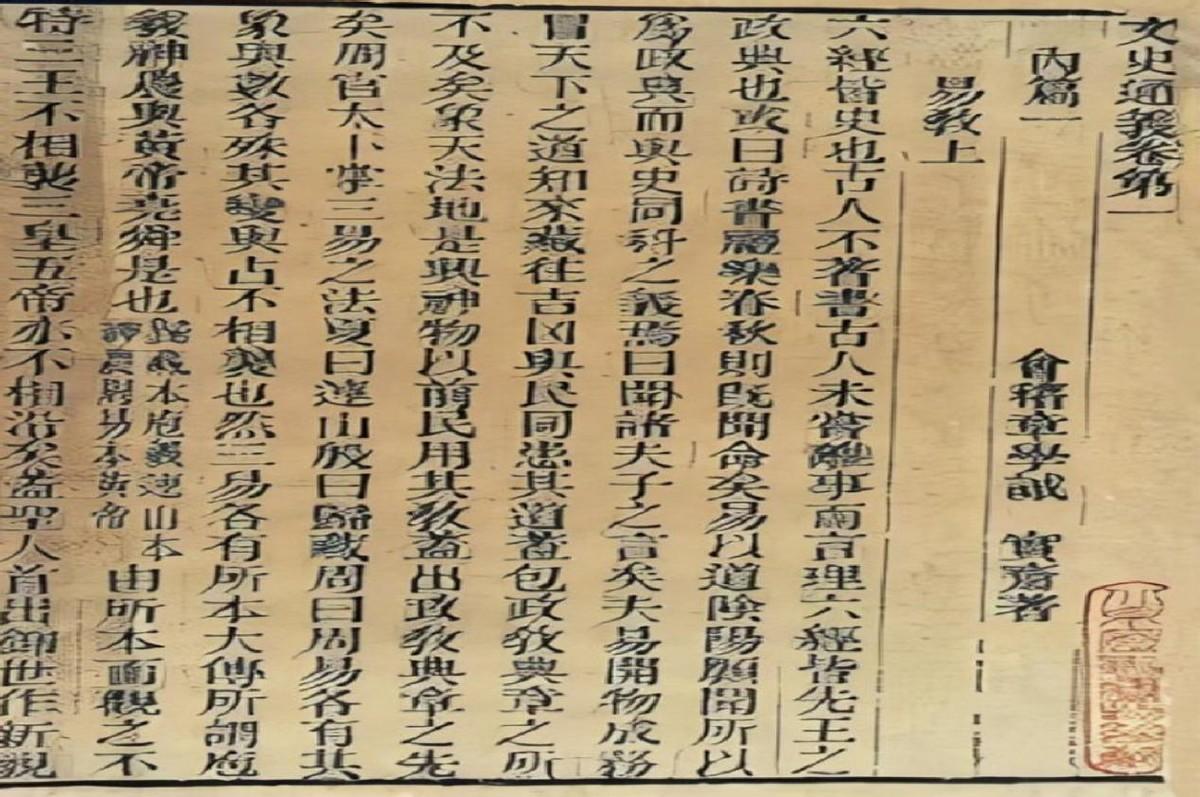 文史通義卷第一
內篇一 會稽章學誠 實齋著
易教上
六經皆史也古人不著書古人未嘗離事而言理六經皆先王之
政典也或曰詩書禮樂春秋則既聞命矣易以道陰陽願聞所以
爲政典而與史同科之義焉曰聞諸夫子之言矣夫易開物成務
冒天下之道知來藏往吉凶與民同患其道蓋包政教典章之所
不及矣象天法地是興神物以前民用其教蓋出政教典章之先
矣周官太卜掌三易之法夏曰連山殷曰歸藏周曰周易各有其
象與數各殊其變與占不相襲也然三易各有所本大傳所謂庖
羲神農與黃帝堯舜是也歸藏本庖羲連山本神農周易本黃帝由所本而觀之不
特三王不相襲三皇五帝亦不相沿矣蓋聖人首出御世作新視